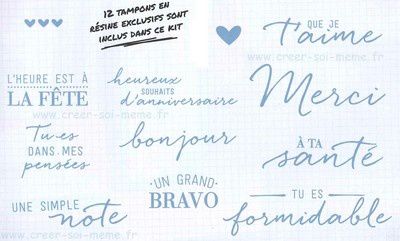 12 TAMPONS EN
RÉSINE EXCLUSIFS SONT
INCLUS DANS CE KIT
QUE JE
t'aime
www.creer-soi-meme.fr
L'HEURE EST À
LA FÊTE
heureux
SOUHAITS
d'anniversaire
Merci
www.creer-soi-meme.fr
Tu es
DANS MES
pensées
bonjour
À TA
santé
UN GRAND
BRAVO
UNE SIMPLE
note
TU ES
formidable
www.creer-soi-meme.fr